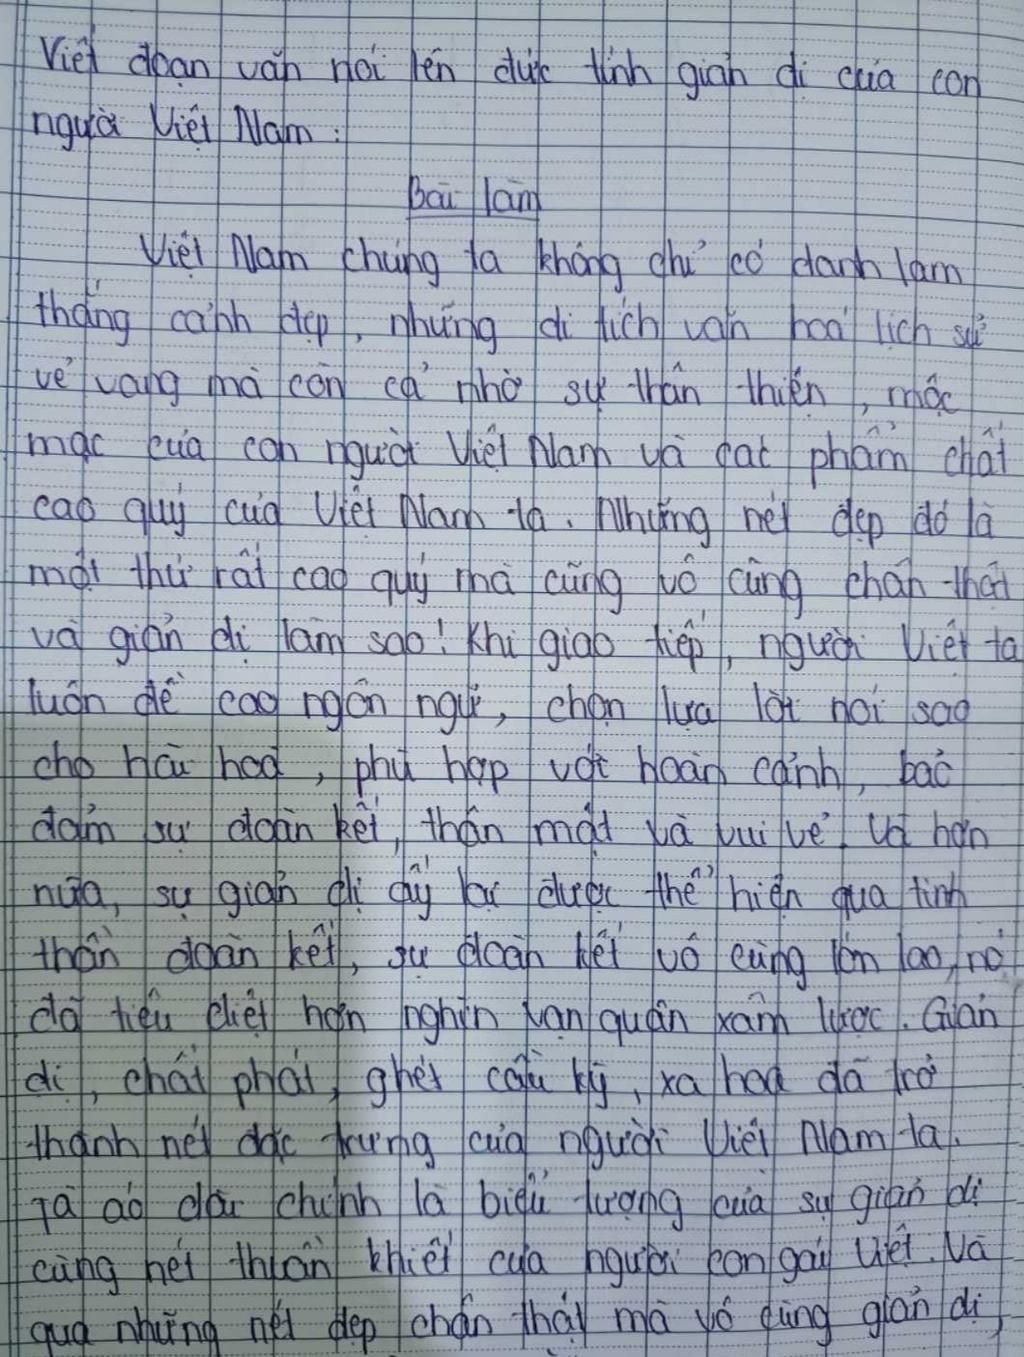 Viết đoạn văn nói lên đức tính giản dị của con
người Việt Nam :
Bài làm
Việt Nam chúng ta không chỉ có danh lam
thắng cảnh đẹp, những di tích văn hoá lịch sử
vẻ vang mà còn cả nhờ sự thân thiện, mộc
mạc của con người Việt Nam và các phẩm chất
cao quý của Việt Nam ta. Những nét đẹp đó là
một thứ rất cao quý mà cũng vô cùng chân thật
và giản dị làm sao! Khi giao tiếp, người Việt ta
luôn đề cao ngôn ngữ, chọn lựa lời nói sao
cho hài hoà, phù hợp với hoàn cảnh, bảo
đảm sự đoàn kết, thân mật và vui vẻ. Và hơn
nữa, sự giản dị ấy lại được thể hiện qua tinh
thần đoàn kết, sự đoàn kết vô cùng lớn lao, nó
đã tiêu diệt hơn nghìn vạn quân xâm lược. Giản
dị, chất phát, ghét cầu kỳ, xa hoa đã trở
thành nét đặc trưng của người Việt Nam ta.
Tà áo dài chính là biểu tượng của sự giản dị
cùng nét thuần khiết của người con gái Việt. Và
qua những nét đẹp chân thật mà vô cùng giản dị,